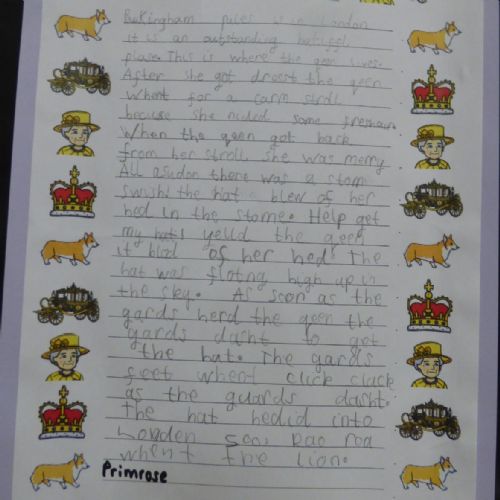 Buckingham pules is in London
it is an outstanding batiffl
plase. This is where the qeen lives.
After she got dresst the qeen
whent for a carm stroll
because she nided some freshair.
When the qeen got back
from her stroll she was merry
All asudon there was a stom
swish! the hat blew of her
hed in the stome. Help get
my hat! yelld the qeen
it blod of her hed. The
hat was floting high up in
the sky. As soon as the
gards herd the qeen the
gards dasht to get
the hat. The gards
feet whent click clack
as the guards dasht.
The hat hedid into
Londen Zoo. Rao roa
whent the lion.
Primrose